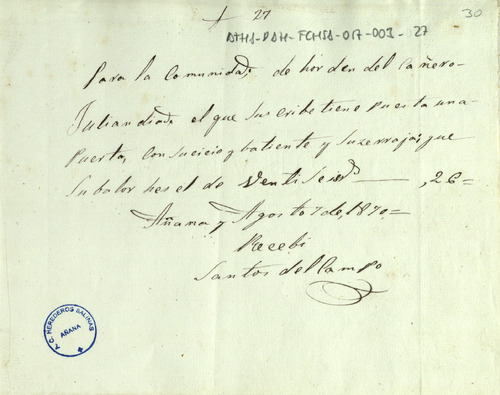 + 27
30
ATHA-DAH-FCHSA-017-003-27
Para la Comunidad de horden del Cañero
Julian diad el que Suscribe tiene puesta una
Puerta, con su cicio y batiente y su zerraja; que
Su balor hes el de Ventiseis rs ,26=
Añana y Agosto 7 de, 1870=
Recebi
Santos del Campo
T. C. HEREDEROS SALINAS
AÑANA